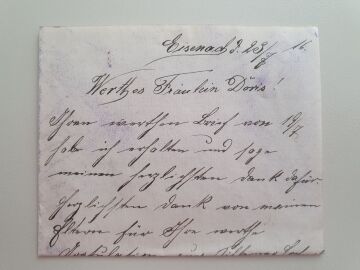 Eisenach d. 23/7 16.
Werthes Fräulein Doris!
Ihren werthen Brief vom 19/7
hab ich erhalten und sage
meinen herzlichsten Dank dafür.
Herzlichsten Dank von meinen
Eltern für Ihre werthe
Gratulation zur Silbernen